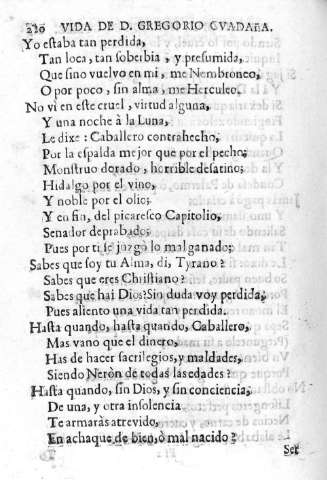 220 VIDA DE D. GREGORIO GVADAñA.
Yo estaba tan perdida,
Tan loca, tan soberbia, y presumida,
Que sino vuelvo en mi, me Nembroneo,
O por poco, sin alma, me Herculeo.
No vi en este cruel, virtud alguna,
Y una noche à la Luna,
Le dixe: Caballero contrahecho,
Por la espalda mejor que por el pecho;
Monstruo dorado, horrible desatino;
Hidalgo por el vino,
Y noble por el olio;
Y en fin, del picaresco Capitolio,
Senador deprabado;
Pues por ti se juzgò lo mal ganado;
Sabes que soy tu Alma, di, Tyrano?
Sabes que eres Christiano?
Sabes que hai Dios? Sin duda voy perdida;
Pues aliento una vida tan perdida.
Hasta quando, hasta quando, Caballero,
Mas vano que el dinero,
Has de hacer sacrilegios, y maldades,
Siendo Neròn de todas las edades?
Hasta quando, sin Dios, y sin conciencia,
De una, y otra insolencia
Te armaràs atrevido,
En achaque de bien, ò mal nacido?
Ser